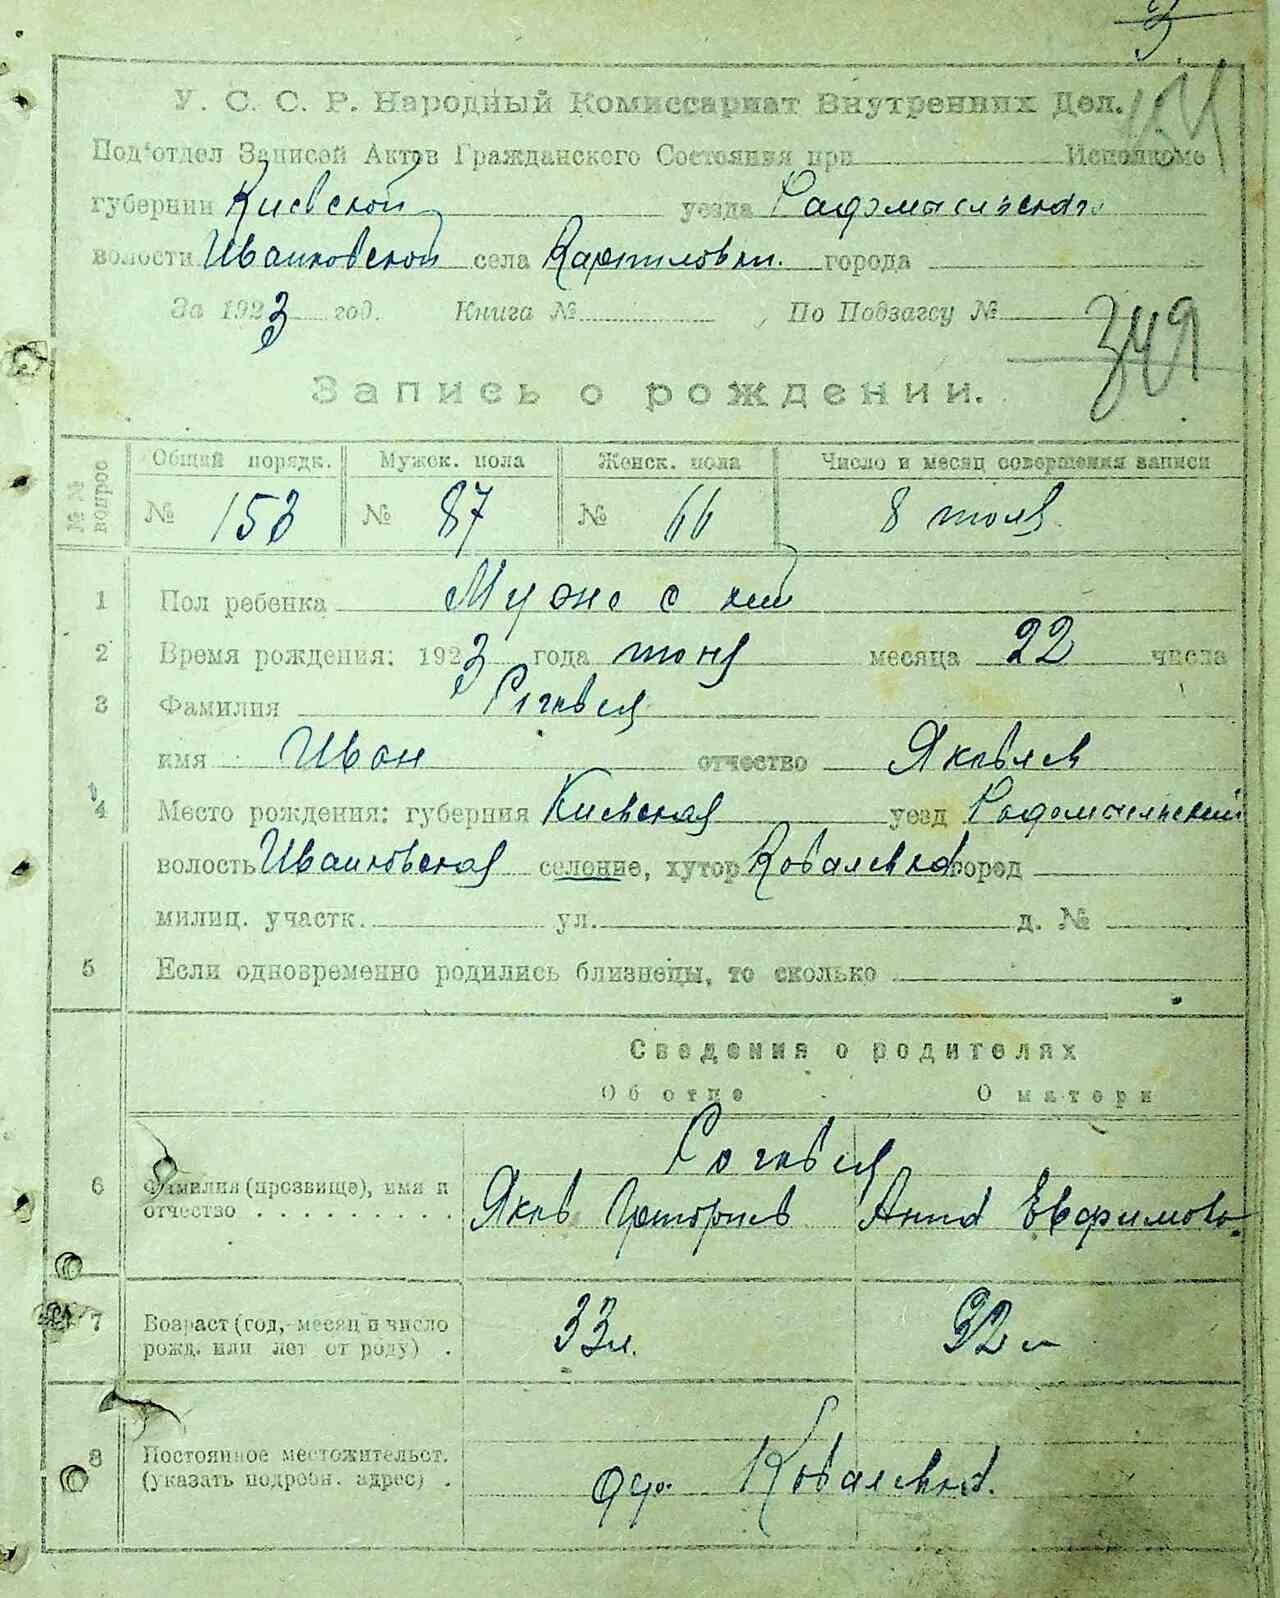 У. С. С. Р. Народный Комиссариат Внутренних Дел.
Под'отдел Записей Актов Гражданского Состояния при Исполкоме
губернии Киевской уезда Радомысльска
волости Иванковской села Карпиловки. города
За 1923 год. Книга № По Подзагсу № 349
Запись о рождении.
№№ вопрос Общий порядк. Мужск. пола Женск. пола Число и месяц совершения записи
№ 153 № 87 № 66 8 июля
1 Пол ребенка Мужской
2 Время рождения: 1923 года июня месяца 22 числа
3 Фамилия
имя Иван отчество Яковлев
4 Место рождения: губерния Киевская уезд Радомысльский
волость Иванковская селение, хутор Ковалевка город
милиц. участк. ул. д. №
5 Если одновременно родились близнецы, то сколько
Сведения о родителях
Об отце О матери
6 Фамилия (прозвище), имя и отчество
Яков Григориев Анна Евфимова
7 Возраст (год, месяц и число рожд. или лет от роду) . 33 л. 32 л
8 Постоянное местожительст. (указать подробн. адрес) . Ковалевка.